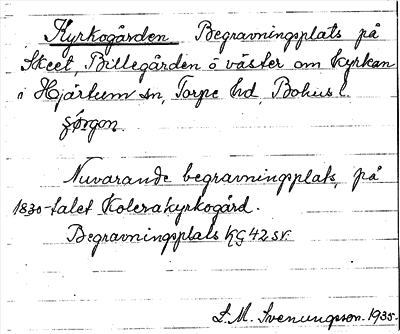 Kyrkogården Begravningsplats på
Skeet, Billegården ö väster om kyrkan
i Hjärtum sn, Torpe hd, Bohus l.
Nuvarande begravningsplats, på
1830-talet Kolerakyrkogård.
Begravningsplats KG 42 sv.
L.M. Svenungson. 1935.